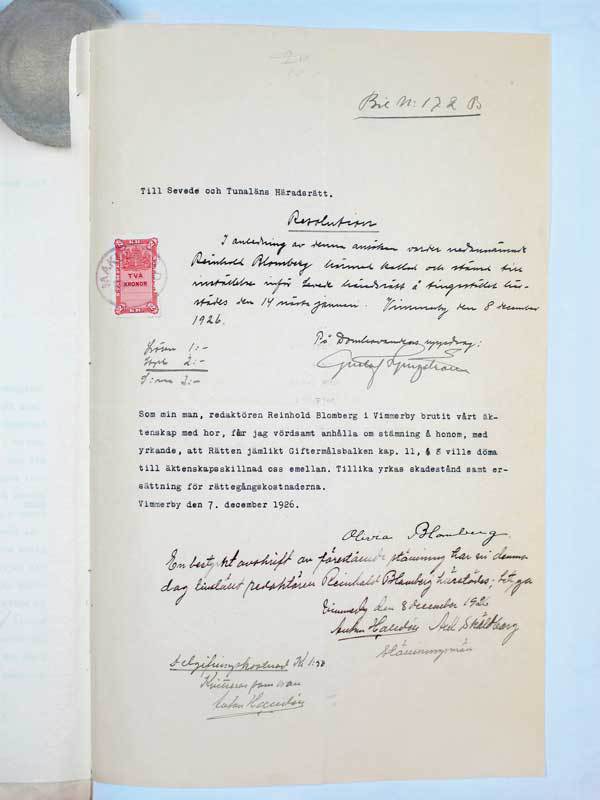 Bil N: 172 B
Till Sevede och Tunaläns Häradsrätt.
Resolution
I anledning av denna ansökan varder nedannämnde
Reinhold Blomberg härmed kallad och stämd till
inställelse inför Sevede häradsrätt å tingsstället här-
städes den 14 nästa januari. Vimmerby den 8 december
1926.
TVÅ
KRONOR
På Domhavandens uppdrag:
Lösen 1:-
2:-
S:ma 3:-
Gustaf
Som min man, redaktören Reinhold Blomberg i Vimmerby brutit vårt äk-
tenskap med hor, får jag vördsamt anhålla om stämning å honom, med
yrkande, att Rätten jämlikt Giftermålsbalken kap. 11, § 8 ville döma
till äktenskapsskillnad oss emellan. Tillika yrkas skadestånd samt er-
sättning för rättegångskostnaderna.
Vimmerby den 7. december 1926.
Olivia Blomberg.
En bestyrkt avskrift av förestående stämning har vi denna
dag tillställt redaktören Reinhold Blomberg härstädes; betyga
Vimmerby den 8 december 1926
Anton Ard Sköldberg
stämningsmän
Delgifningskostnad Kr 1:50
Kvitteras som ovan
Anton